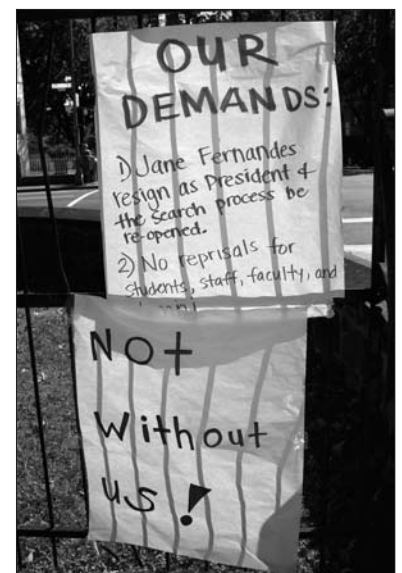 OUR
DEMANDS:
1) Jane Fernandes
resign as President &
the search process be
re-opened.
2) No reprisals for
students, staff, faculty, and
Not
Without
us!